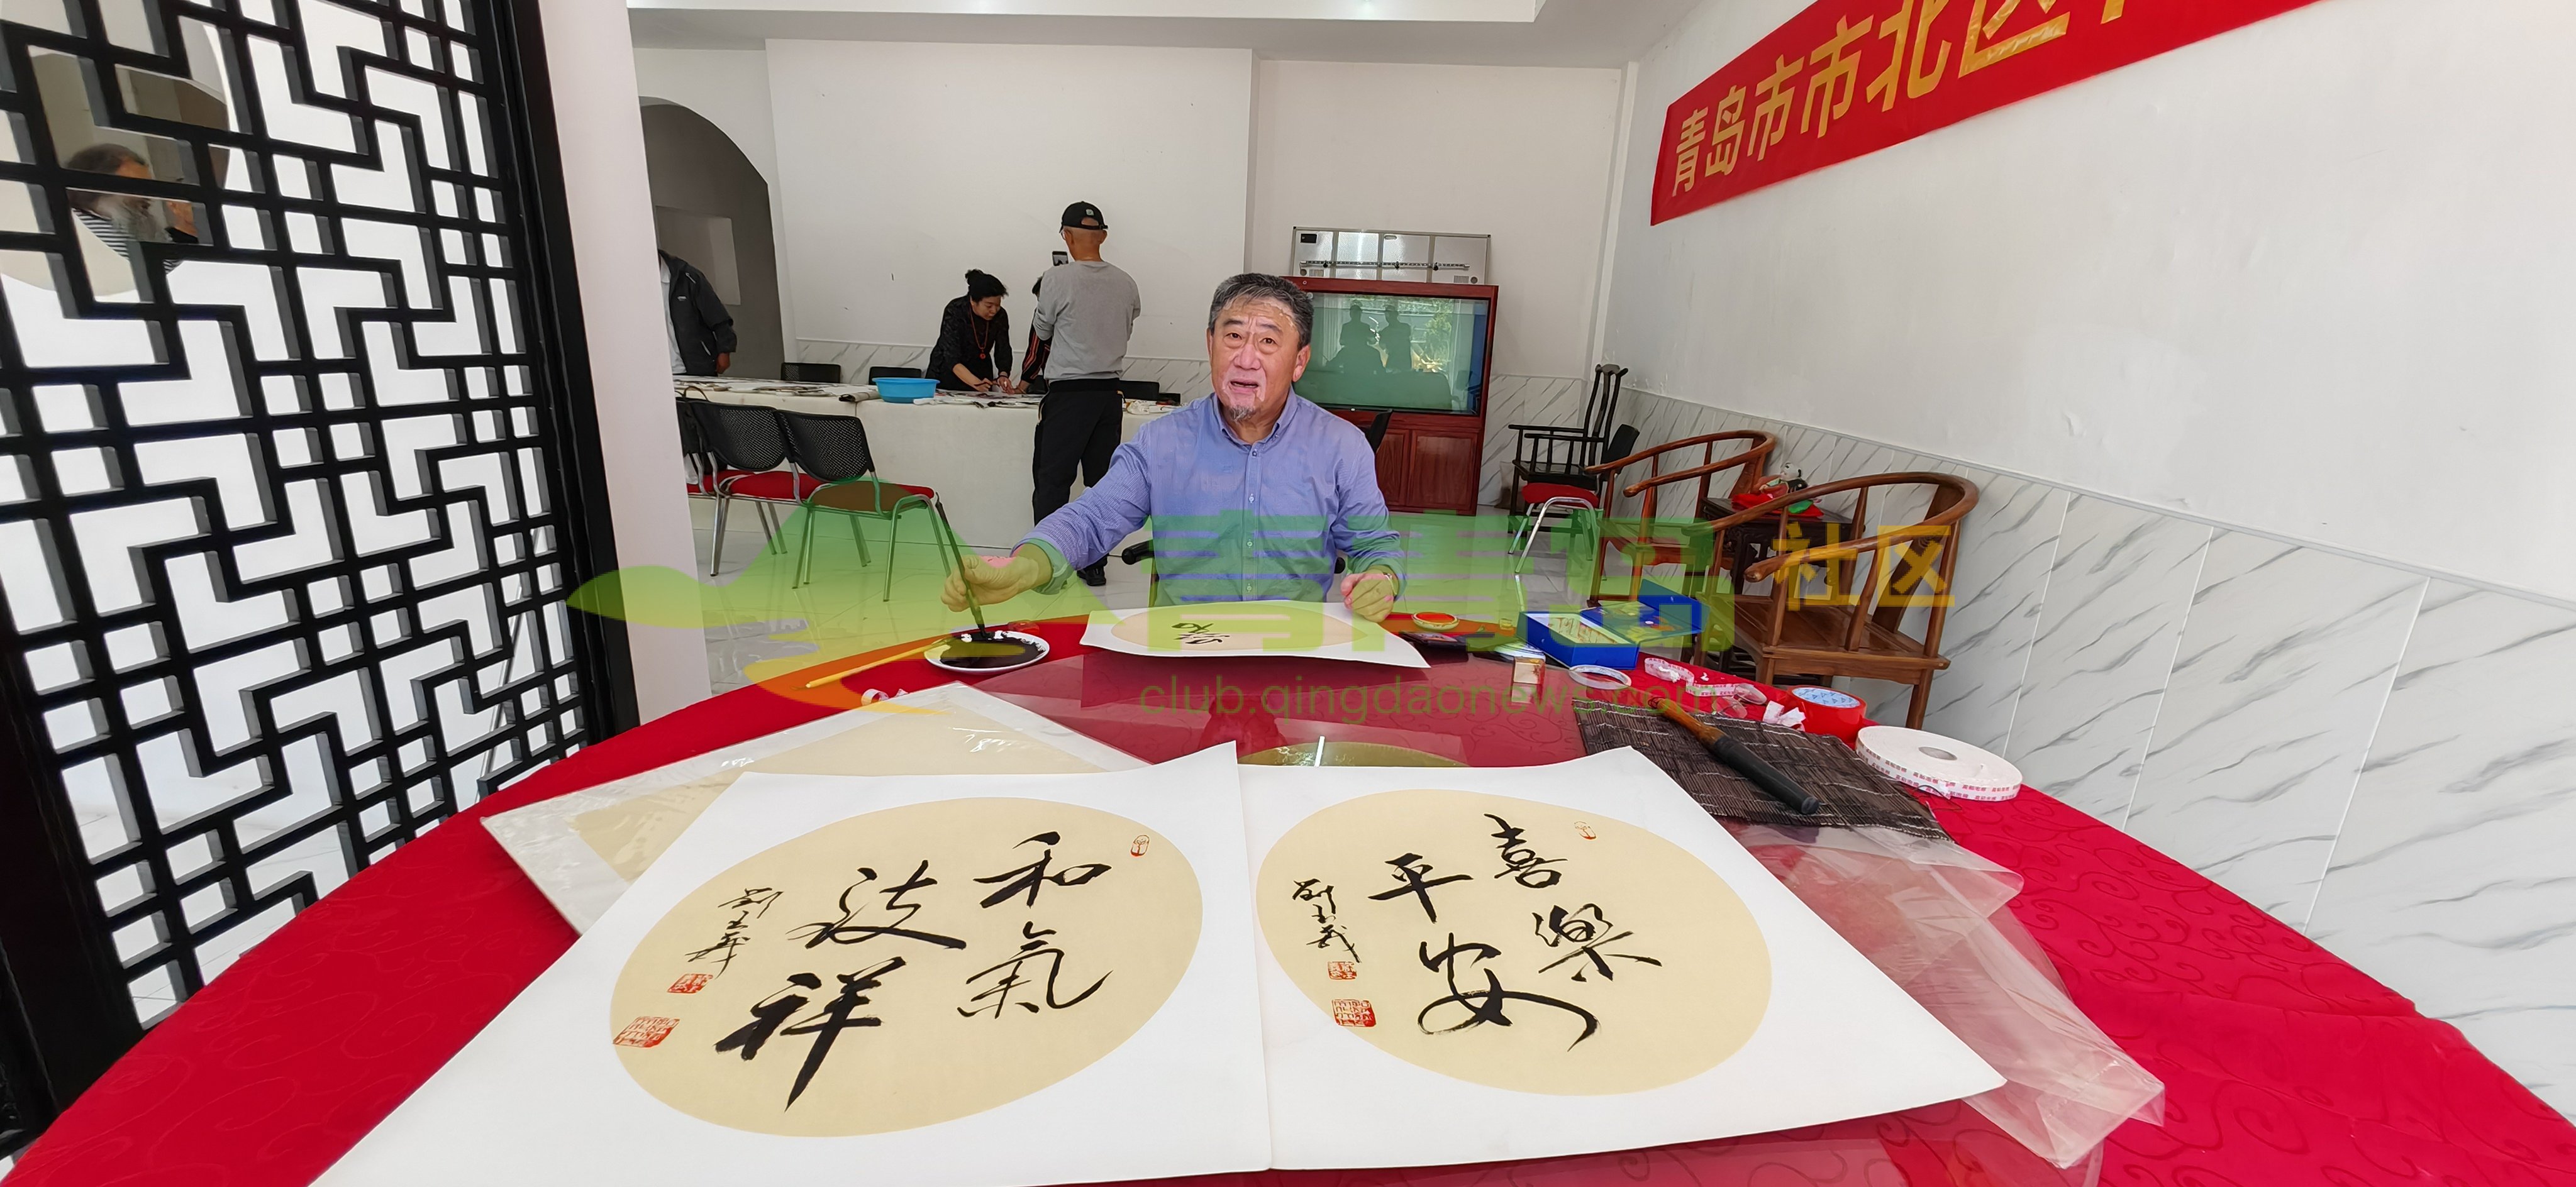 青岛市市北区
青青岛社区
club.qingdaonews.com
和氣
致祥
喜樂
平安